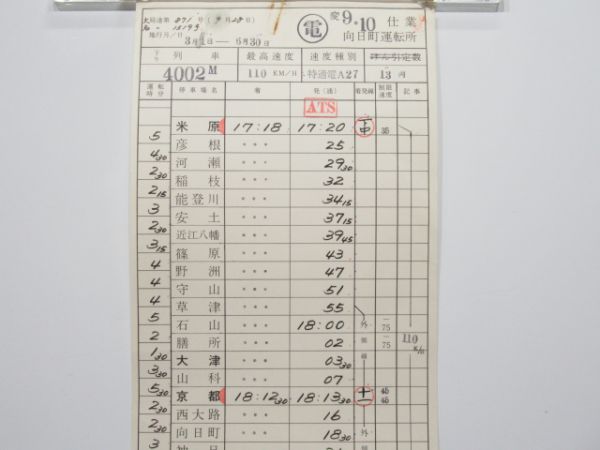 電 変 9.10 仕業
向日町運転所
3月1日 — 6月30日
列車 最高速度 速度種別 けん引定数
4002M 110 KM/H 特通電A27 13 両
運転時分 停車場名 着 発(通) 着発線 制限速度 記事
ATS
米原 17:18 17:20 中
5
彦根 ・・・ 25
4 30
河瀬 ・・・ 29 30
2 30
稲枝 ・・・ 32
2 15
能登川 ・・・ 34 15
3
安土 ・・・ 37 15
2 30
近江八幡 ・・・ 39 45
3 15
篠原 ・・・ 43
4
野洲 ・・・ 47
4
守山 ・・・ 51
4
草津 ・・・ 55
5
石山 ・・・ 18:00 外 75
2
膳所 ・・・ 02 75 110
1 30
大津 ・・・ 03 30 線
3 30
山科 ・・・ 07
5 30
京都 18:12 30 18:13 30
2 30
西大路 ・・・ 16
2 30
向日町 ・・・ 18 30 外
3